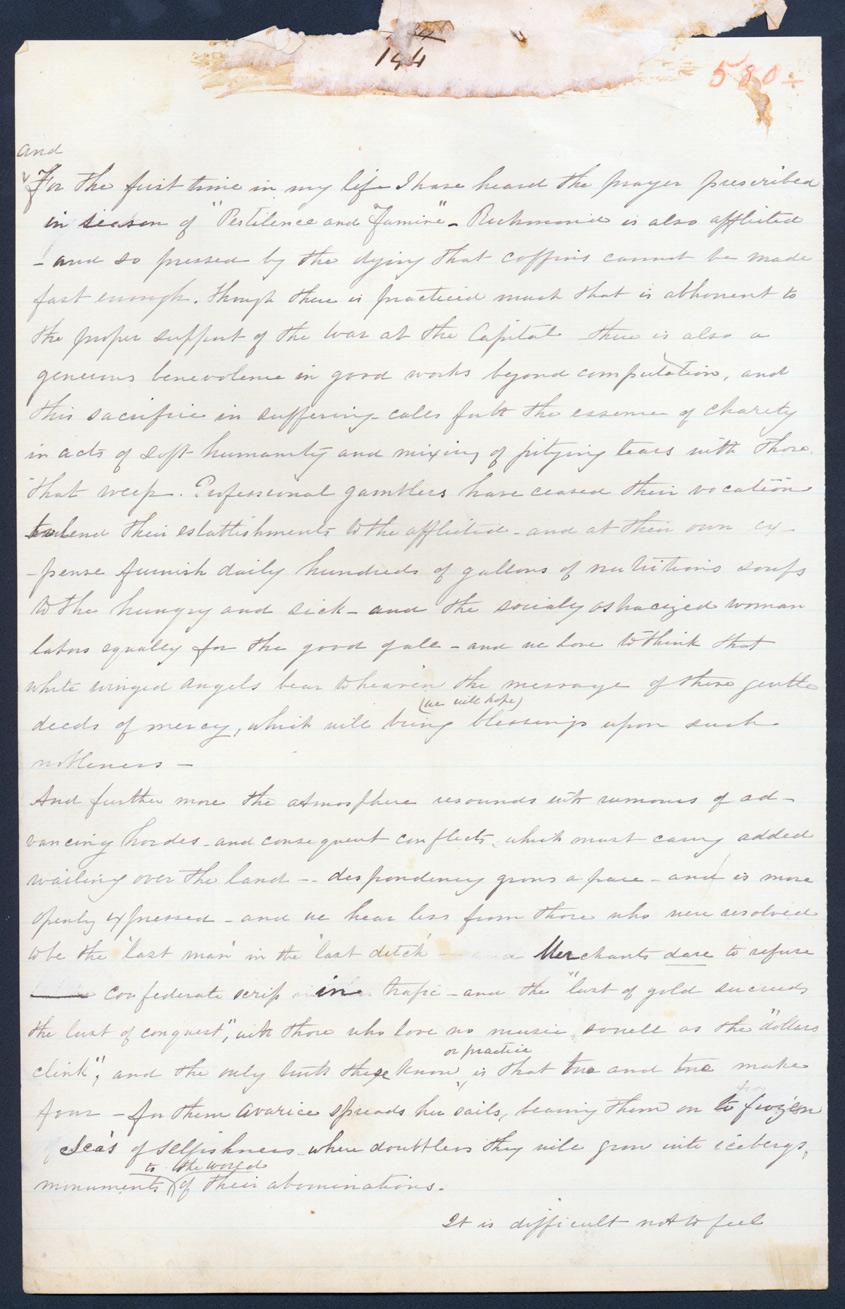 194
580÷
and
For the first time in my life I have heard the prayer prescribed
in season of "Pestilence and Famine" - Richmond is also afflicted
- and so pressed by the dying that coffins cannot be made
fast enough. Though there is practiced much that is abhorent to
the proper support of the War at the Capital there is also a
generous benevolence in good works beyond computation, and
this sacrifice in suffering calls forth the essence of charity
in acts of soft humanity and mixing of pitying tears with those
that weep. Professional gamblers have ceased their vocation
to lend their establishments to the afflicted - and at their own ex-
-pense furnish daily hundreds of gallons of nutritious soups
to the hungry and sick - and the socially ostracized woman
labors equally for the good of all - and we love to think that
white winged angels bear to heaven the message of these gentle
(we will hope)
deeds of mercy, which will bring blessings upon such
nobleness -
And further more the atmosphere resounds with rumours of ad-
vancing hordes - and consequent conflicts, which must carry added
wailing over the land -- despondency grows apace - and is more
openly expressed - and we hear less from those who were resolved
to be the 'last man' in the 'last ditch' Merchants dare to refuse
confederate scrip in trafic - and the "lust of gold succeeds
the lust of conquest", with those who love no music so well as the "dollars
or practice
clink", and the only truth these know, is that two and two make
four - for them avarice spreads her sails, bearing them on to frozen
Sea's of selfishness where doubtless they will grow into icebergs,
to the world
monuments of their abominations.
It is difficult not to feel